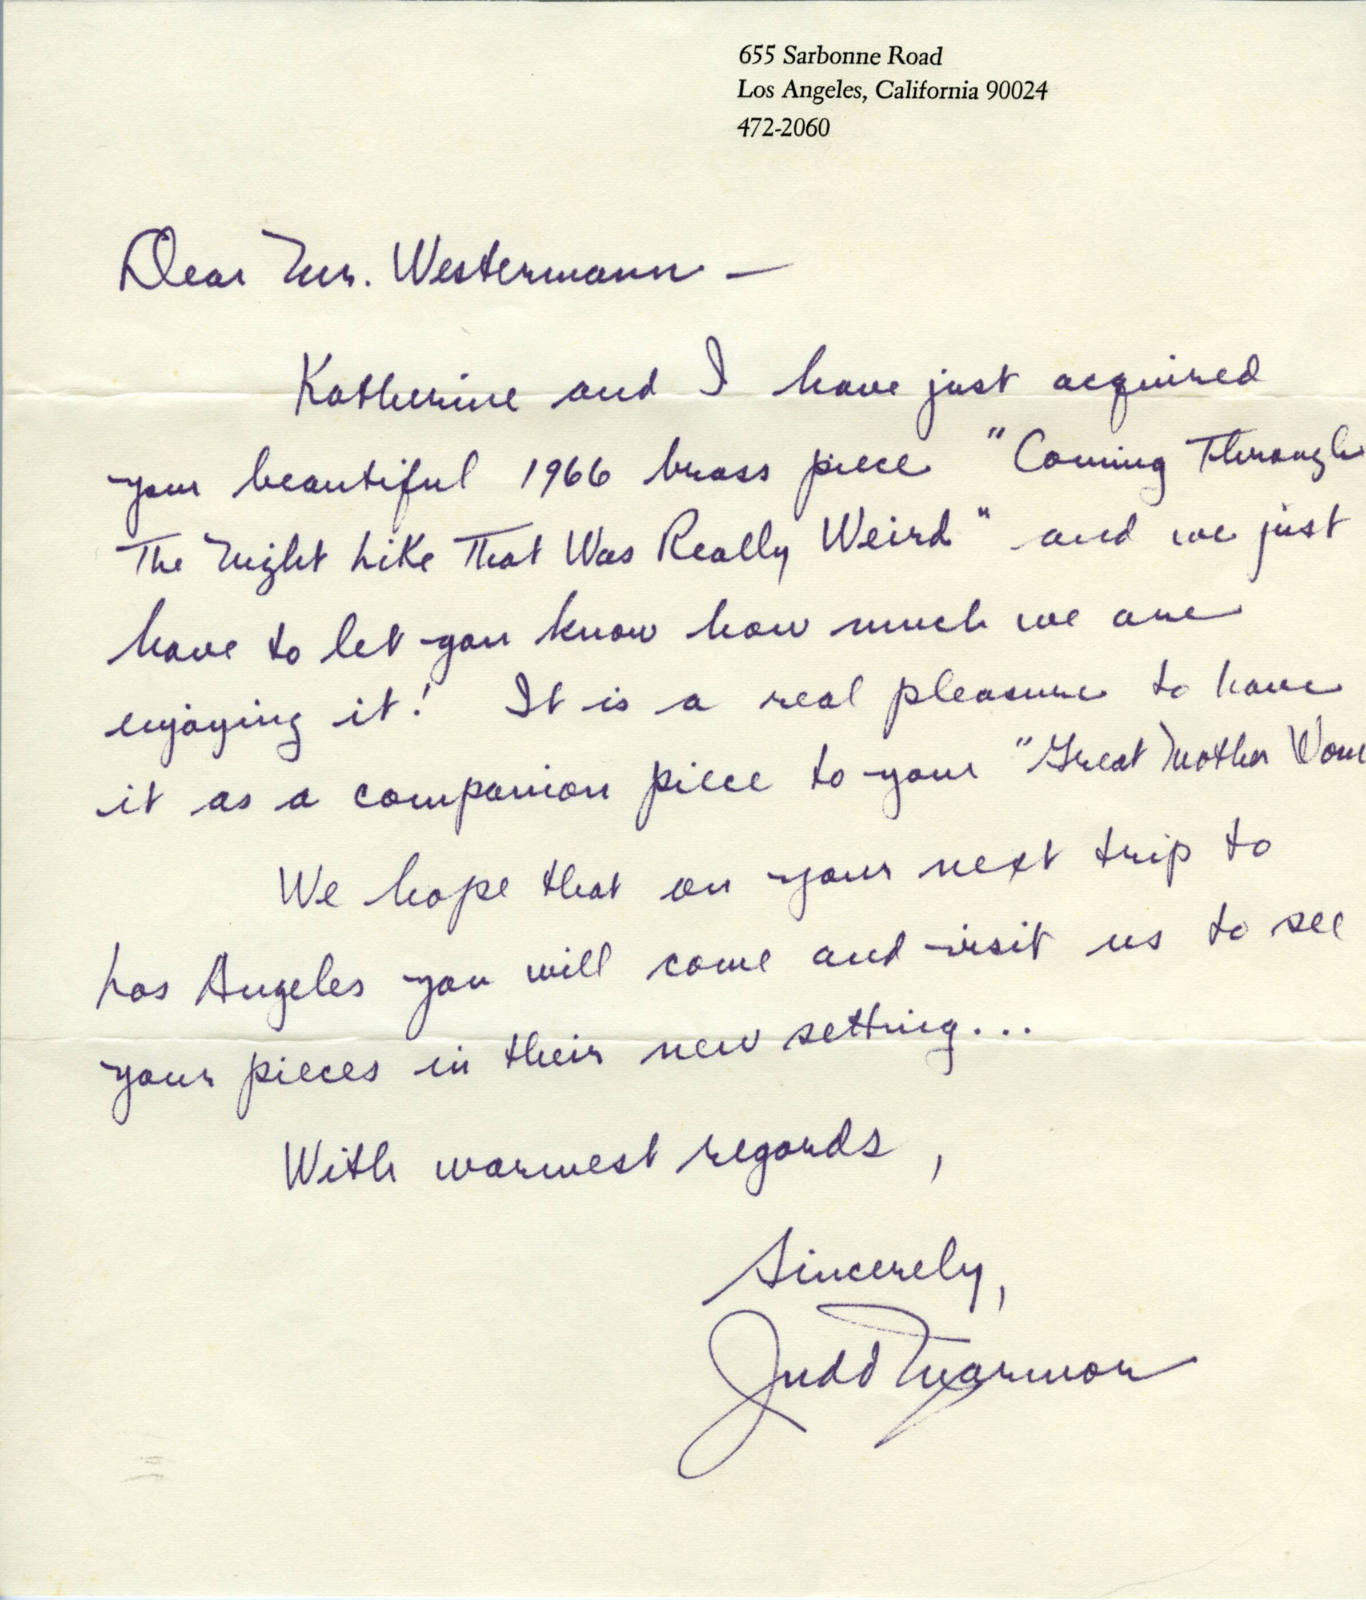 655 Sarbonne Road
Los Angeles, California 90024
472-2060
Dear Mr. Westermann —
Katherine and I have just acquired
your beautiful 1966 brass piece "Coming Through
The Night Like That Was Really Weird" and we just
have to let you know how much we are
enjoying it! It is a real pleasure to have
it as a companion piece to your "Great Mother Wom
We hope that on your next trip to
Los Angeles you will come and visit us to see
your pieces in their new setting...
With warmest regards,
Sincerely,
Judd Marmor